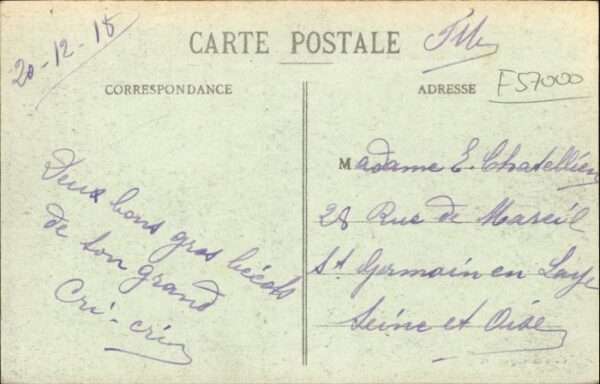 20-12-18
CARTE POSTALE
F.M.
F57000
CORRESPONDANCE
ADRESSE
Deux bons gros bécots
de ton grand
Cri-cri
Madame E. Chatellien
28 Rue de Mareil
St Germain en Laye
Seine et Oise